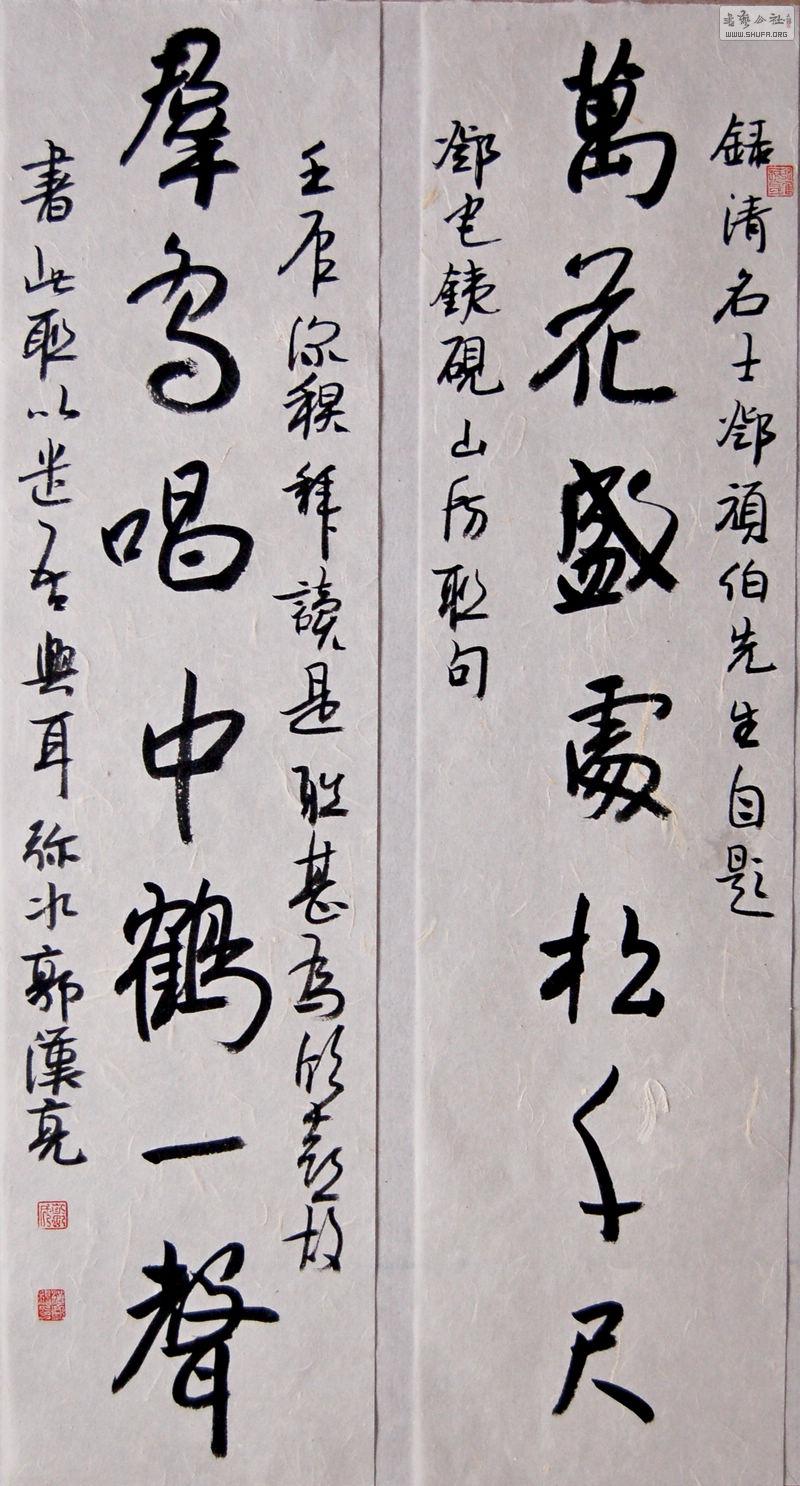 錄清名士鄧頑伯先生自題
萬花盛處松千尺
鄧宅銕硯山房聯句
壬辰深穐拜讀是聯甚為欣喜故
羣鳥喧中鶴一聲
書此聯以遣吾興耳弥水郭漢亮
書藝公社
WWW.SHUFA.ORG